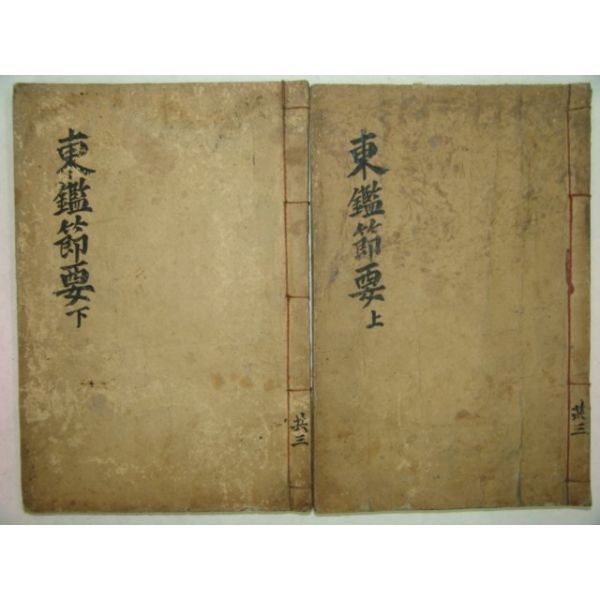 東鑑節要下
共三
東鑑節要上
共三